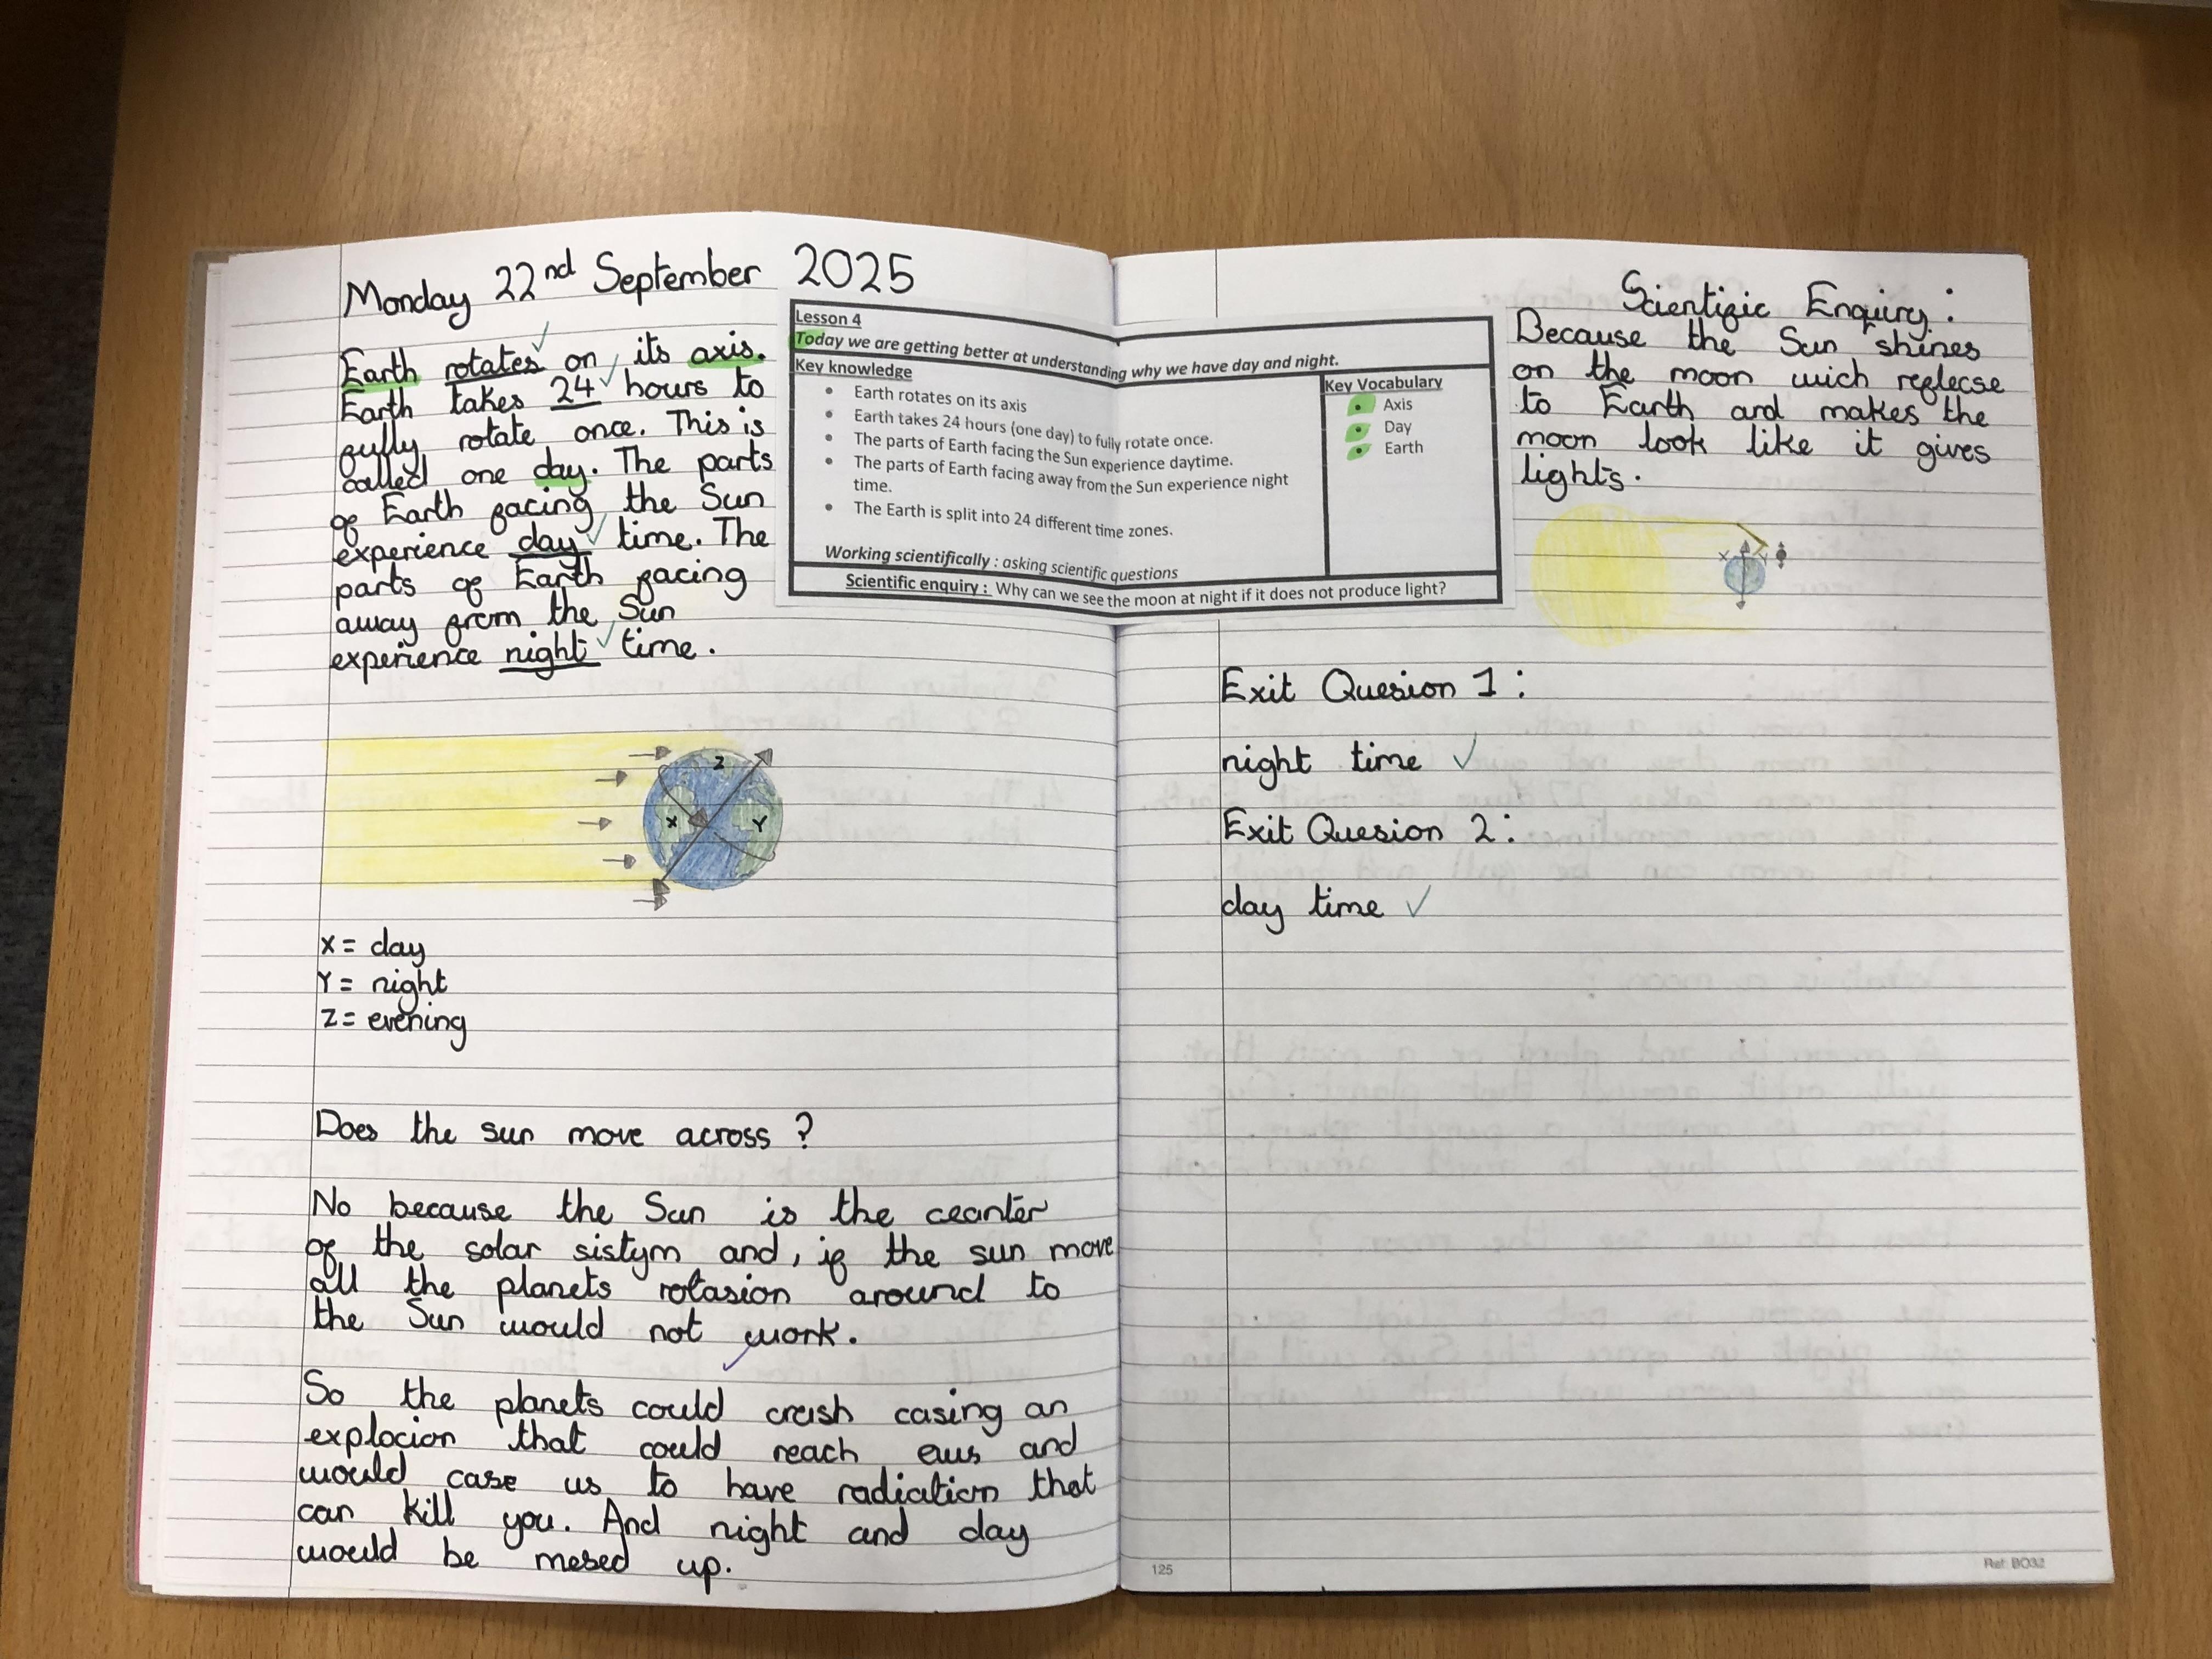 Monday 22nd September 2025
Earth rotates on its axis.
Earth takes 24 hours to
fully rotate once. This is
called one day. The parts
of Earth facing the Sun
experience day time. The
parts of Earth facing
away from the Sun
experience night time.
Z
X
Y
X = day
Y = night
Z = evening
Does the sun move across ?
No because the Sun is the ceanter
of the solar sistym and, if the sun move
all the planets rotasion around to
the Sun would not work.
So the planets could crash casing an
explocion that could reach eus and
would case us to have radiation that
can kill you. And night and day
would be mesed up.
Lesson 4
Today we are getting better at understanding why we have day and night.
Key knowledge
• Earth rotates on its axis
• Earth takes 24 hours (one day) to fully rotate once.
• The parts of Earth facing the Sun experience daytime.
• The parts of Earth facing away from the Sun experience night
time.
• The Earth is split into 24 different time zones.
Working scientifically : asking scientific questions
Key Vocabulary
• Axis
• Day
• Earth
Scientific enquiry : Why can we see the moon at night if it does not produce light?
Scientific Enquiry :
Because the Sun shines
on the moon wich reflecse
to Earth and makes the
moon look like it gives
lights.
X
Y
Exit Quesion 1 :
night time
Exit Quesion 2 :
day time
125
Ref: BO32